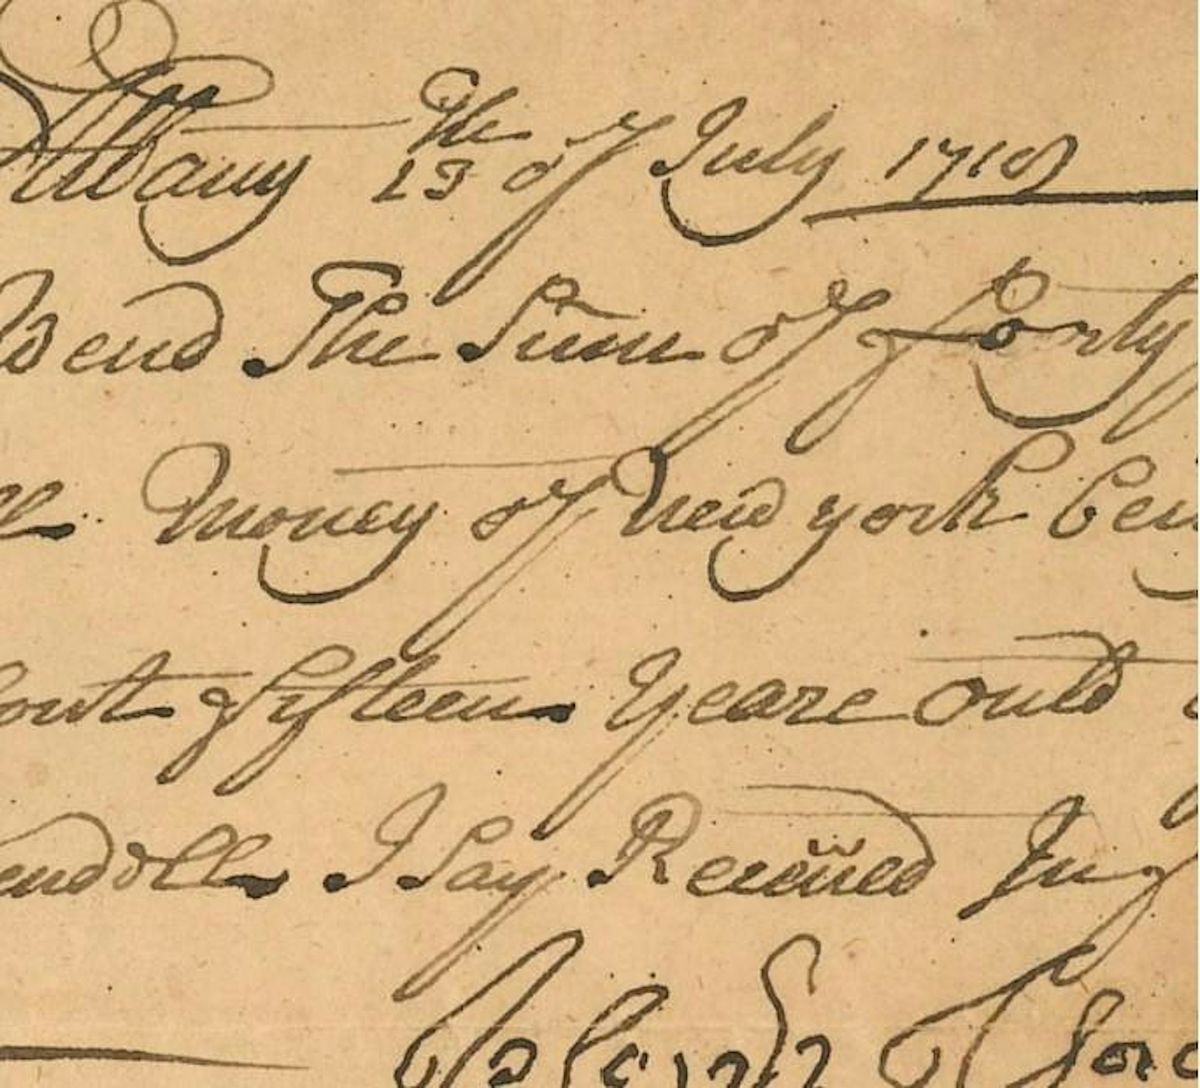 Albany The 13 of July 1718
end The Sum of forty
Money of New york bein
out fifteen Yeare ould
endoll I Say Receiued In